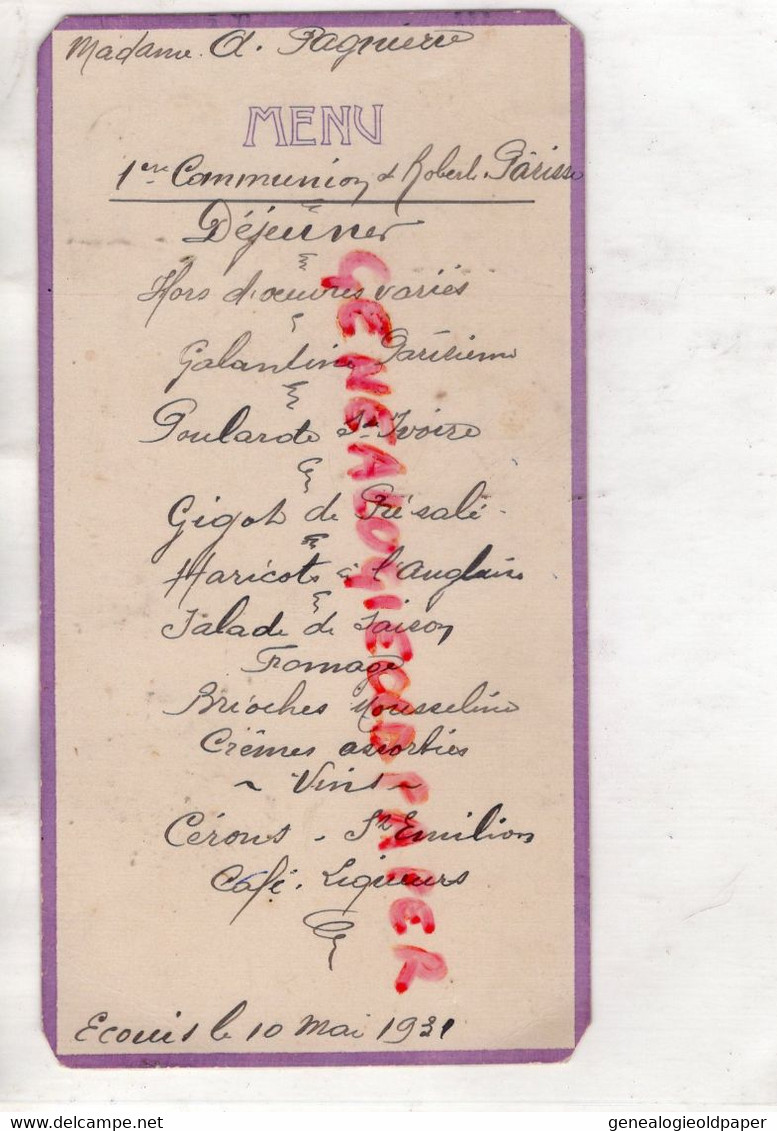 Madame A. Pagnierre
MENU
1ere Communion de Robert Parisse
Déjeuner
Hors d'oeuvres variés
Galantine Parisienne
Poularde St Ivoire
Gigot de Présalé
Haricots à l'Anglaise
Salade de Saison
Fromage
Brioches Mousseline
Crèmes assorties
~ Vins ~
Cérons - St Emilion
Café. Liqueurs
Ecouis le 10 Mai 1931
GENEALOGIEOLDPAPER
genealogieoldpaper